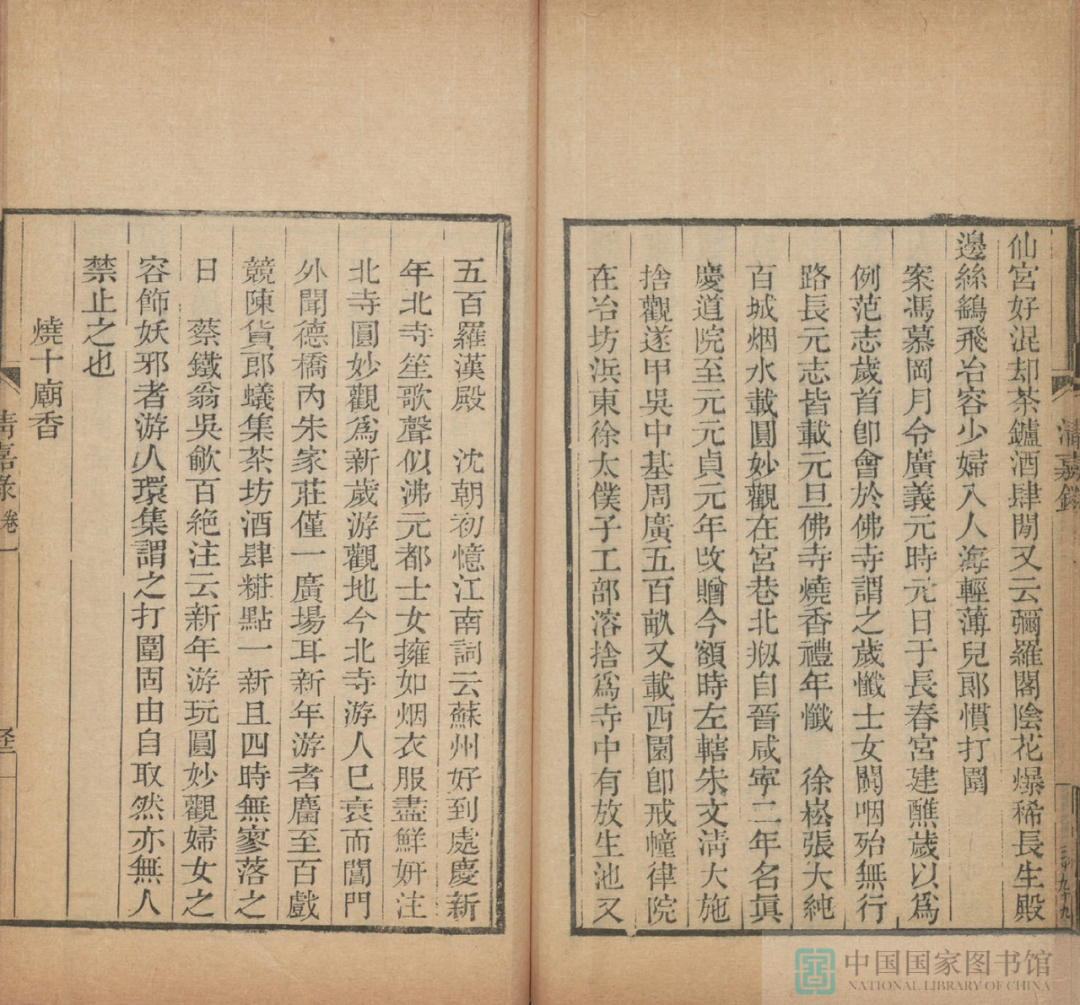 仙宮好混却茶鑪酒肆閒又云彌羅閣陰花爆稀長生殿
邊絲鷂飛冶容少婦入人海輕薄兒郎慣打圍
案馮慕岡月令廣義元時元日于長春宮建醮歲以爲
例范志歲首卽會於佛寺謂之歲懺士女闐咽殆無行
路長元志皆載元旦佛寺燒香禮年懺　徐崧張大純
百城烟水載圓妙觀在宮巷北剏自晉咸寧二年名眞
慶道院至元元貞元年改贈今額時左轄朱文淸大施
捨觀遂甲吳中基周廣五百畝又載西園卽戒幢律院
在冶坊浜東徐太僕子工部溶捨爲寺中有放生池又
清嘉錄
五百羅漢殿　沈朝初憶江南詞云蘇州好到處慶新
年北寺笙歌聲似沸元都士女擁如烟衣服盡鮮妍注
北寺圓妙觀爲新歲游觀地今北寺游人已衰而閶門
外聞德橋內朱家莊僅一廣場耳新年游者麕至百戲
競陳貨郎蟻集茶坊酒肆糚點一新且四時無寥落之
日　蔡鐵翁吳歈百絕注云新年游玩圓妙觀婦女之
容飾妖邪者游人環集謂之打圍固由自取然亦無人
禁止之也
燒十廟香
清嘉錄 卷一
中国国家图书馆
NATIONAL LIBRARY OF CHINA